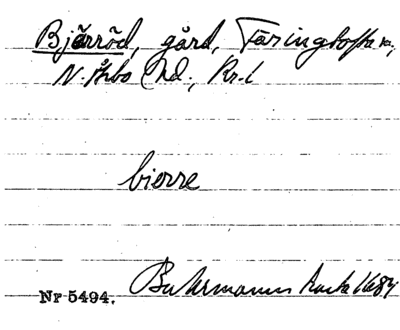 Bjärröd, gård, Färingtofta sn,
N. Åsbo hd., Kr. l
bierre
Buhrmanns karta 1684
Nr 5494.